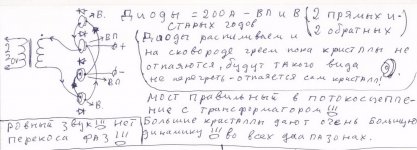 В.
ВП
Ф+
Ф-
ВП
В
ДИОДЫ = 200А - ВП И В
СТАРЫХ ГОДОВ
2 ПРЯМЫХ И
2 ОБРАТНЫХ
ДИОДЫ РАСПИЛИВАЕМ И
НА СКОВОРОДЕ ГРЕЕМ ПОКА КРИСТАЛЛЫ НЕ
ОТПАЯЮТСЯ, БУДУТ ТАКОГО ВИДА
НЕ ПЕРЕГРЕТЬ - ОТПАЯЕТСЯ САМ КРИСТАЛЛ!
МОСТ ПРАВИЛЬНЫЙ В ПОТОКОСЦЕПЛЕ-
НИЕ С ТРАНСФОРМАТОРОМ!!!
БОЛЬШИЕ КРИСТАЛЛЫ ДАЮТ ОЧЕНЬ БОЛЬШУЮ
ДИНАМИКУ!!! ВО ВСЕХ ДИАПАЗОНАХ.
РОВНЫЙ ЗВУК!!! НЕТ
ПЕРЕКОСА ФАЗ!!!